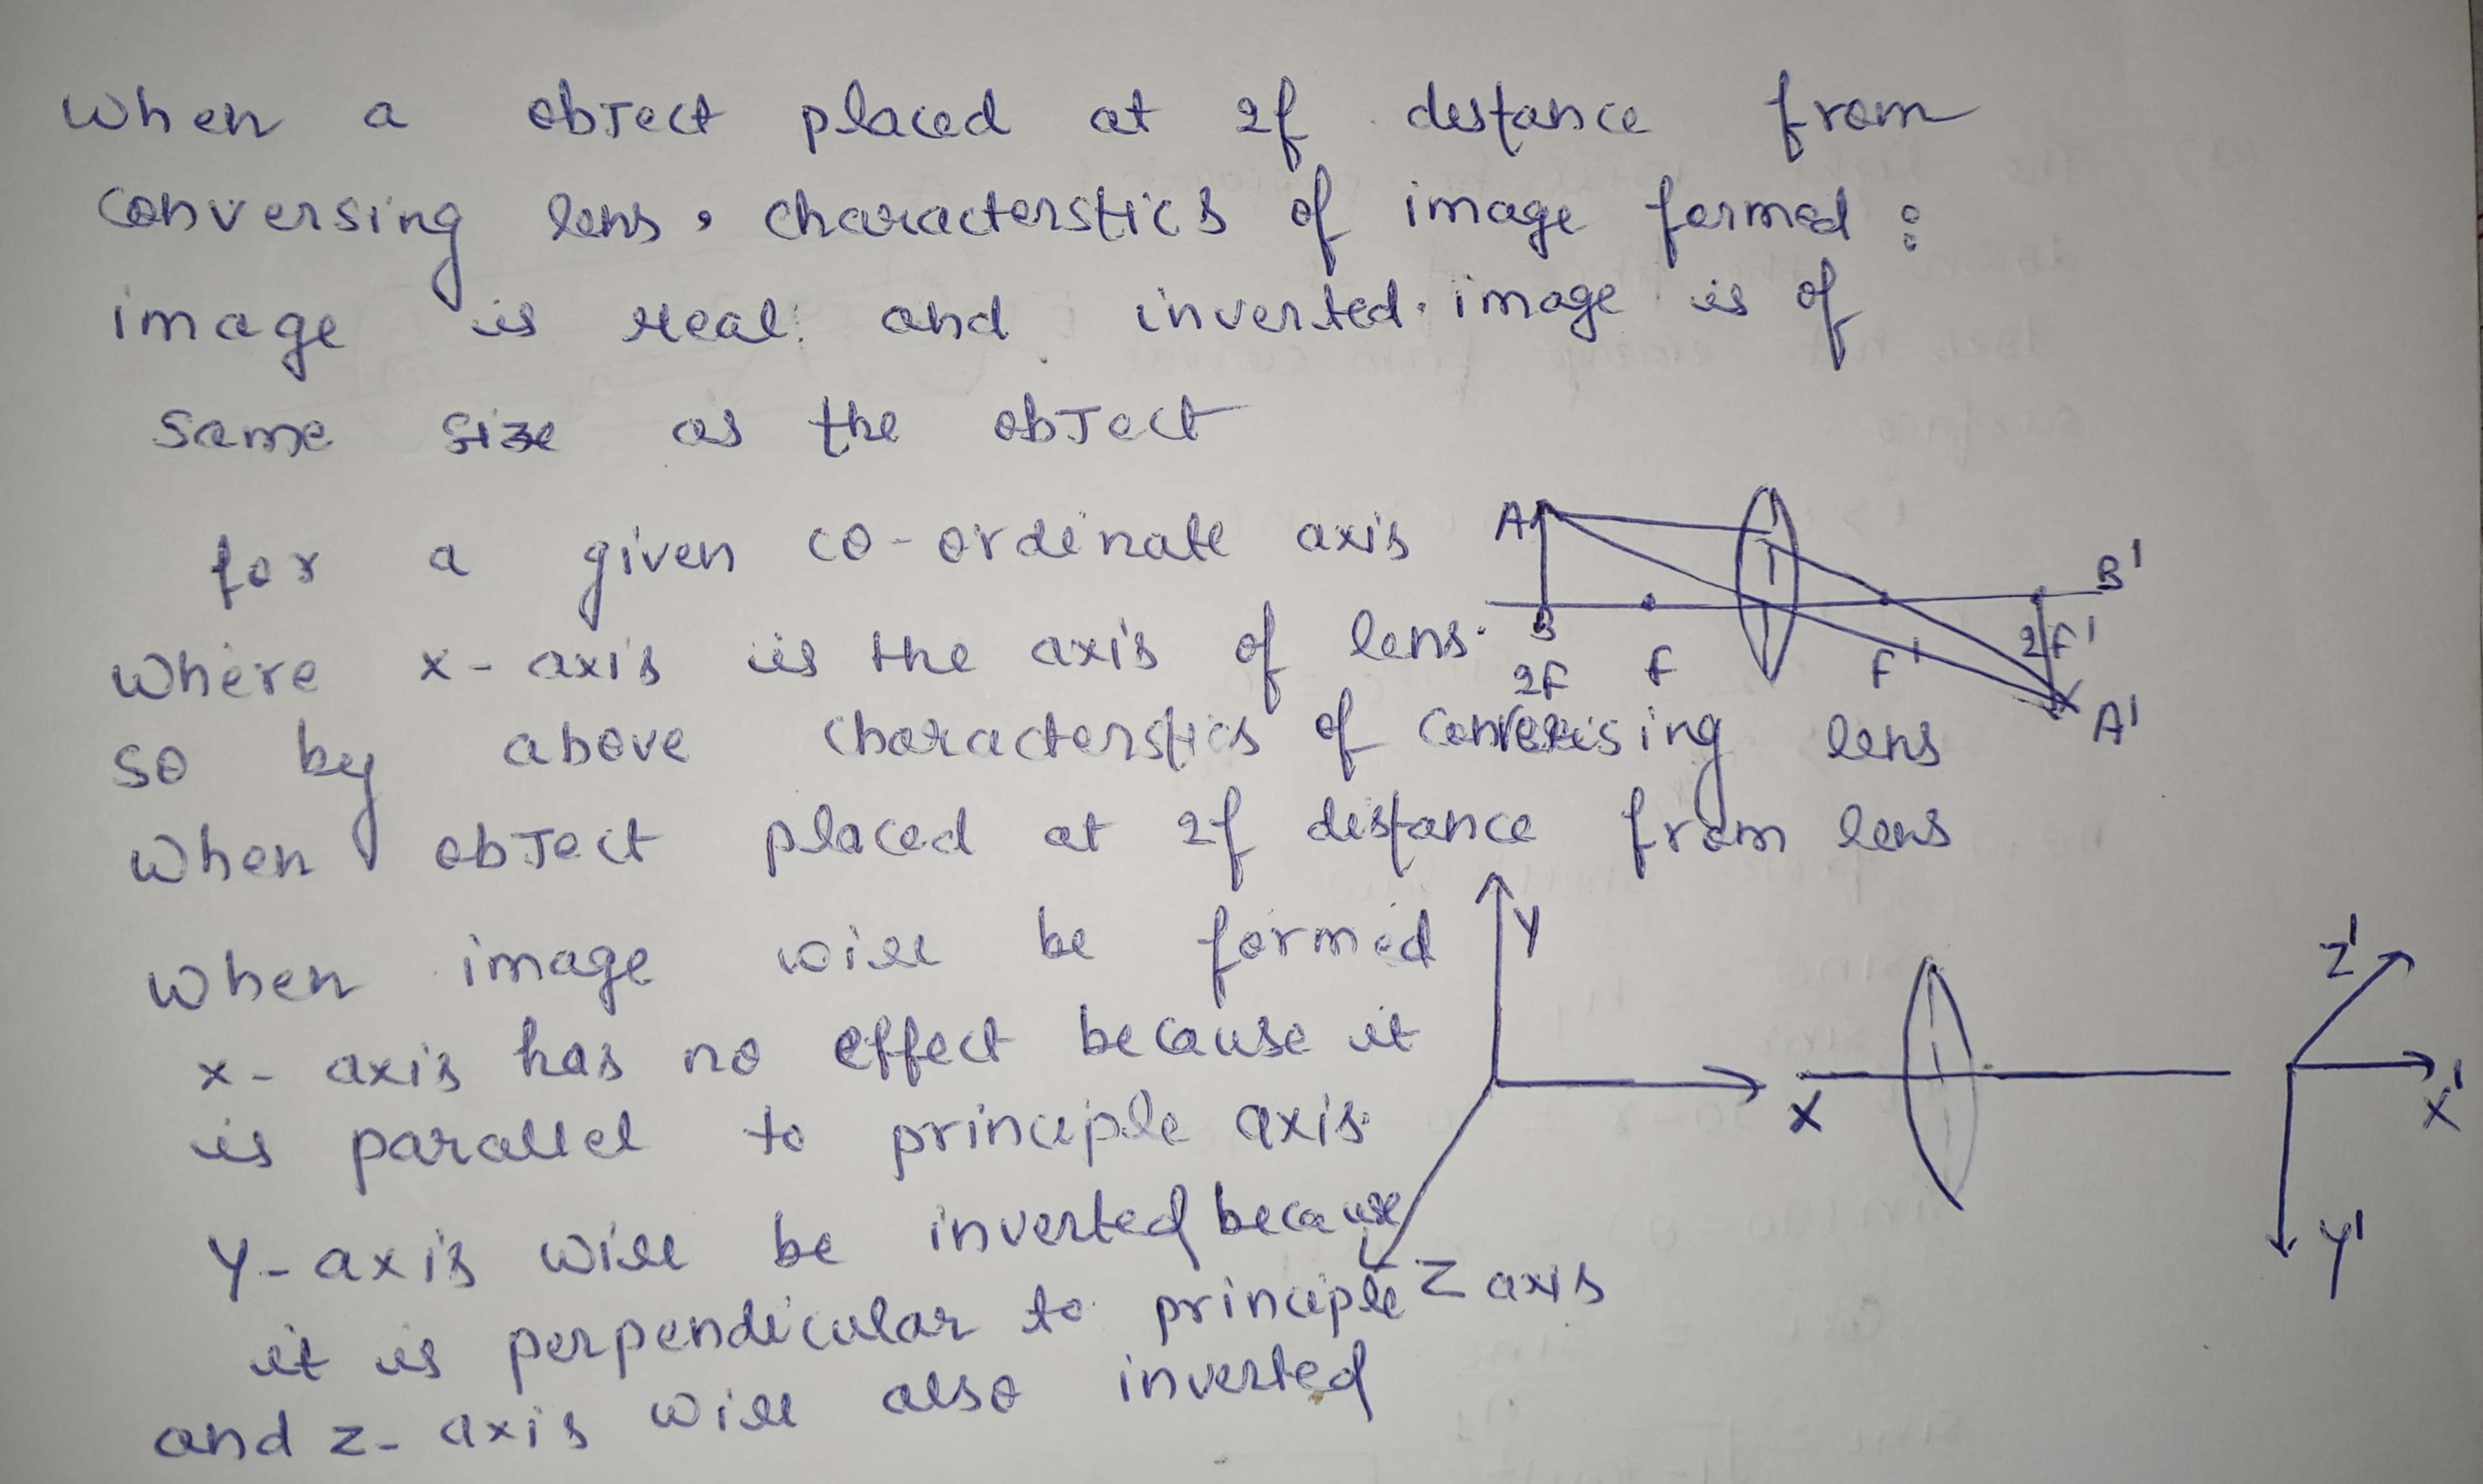 When a object placed at 2f distance from
conversing lens, characterstics of image formed :
image is real and inverted. image is of
same size as the object
for a given co-ordinate axis
where x-axis is the axis of lens.
A
B
2F
F
F'
2F'
B'
A'
so by above characterstics of conversing lens
when object placed at 2f distance from lens
when image will be formed
x-axis has no effect because it
is parallel to principle axis.
Y-axis will be inverted because
it is perpendicular to principle
and z-axis will also inverted
Y
X
Z axis
Z'
X'
Y'